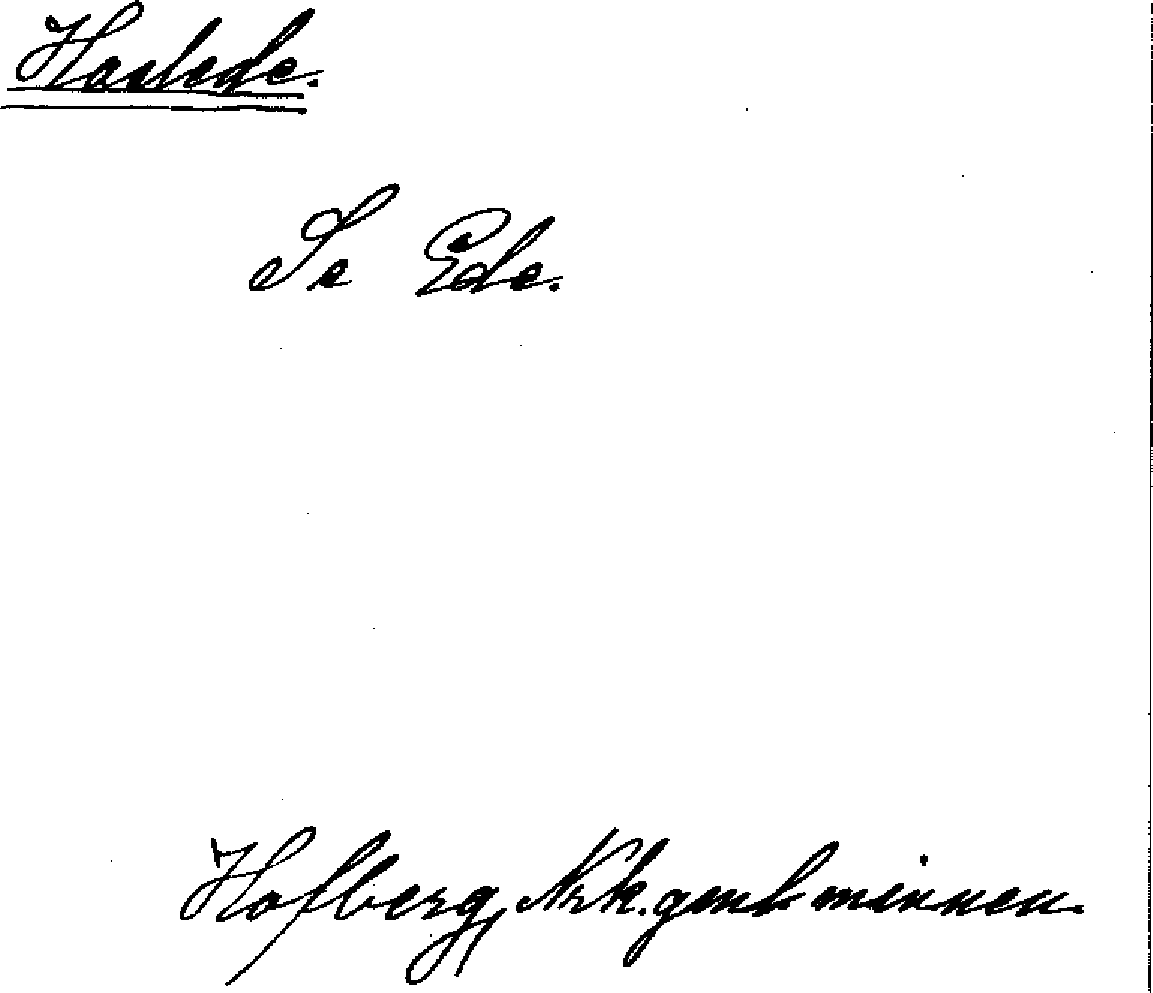 Haslede.
Se Ede.
Hofberg, Nrk. minnen.